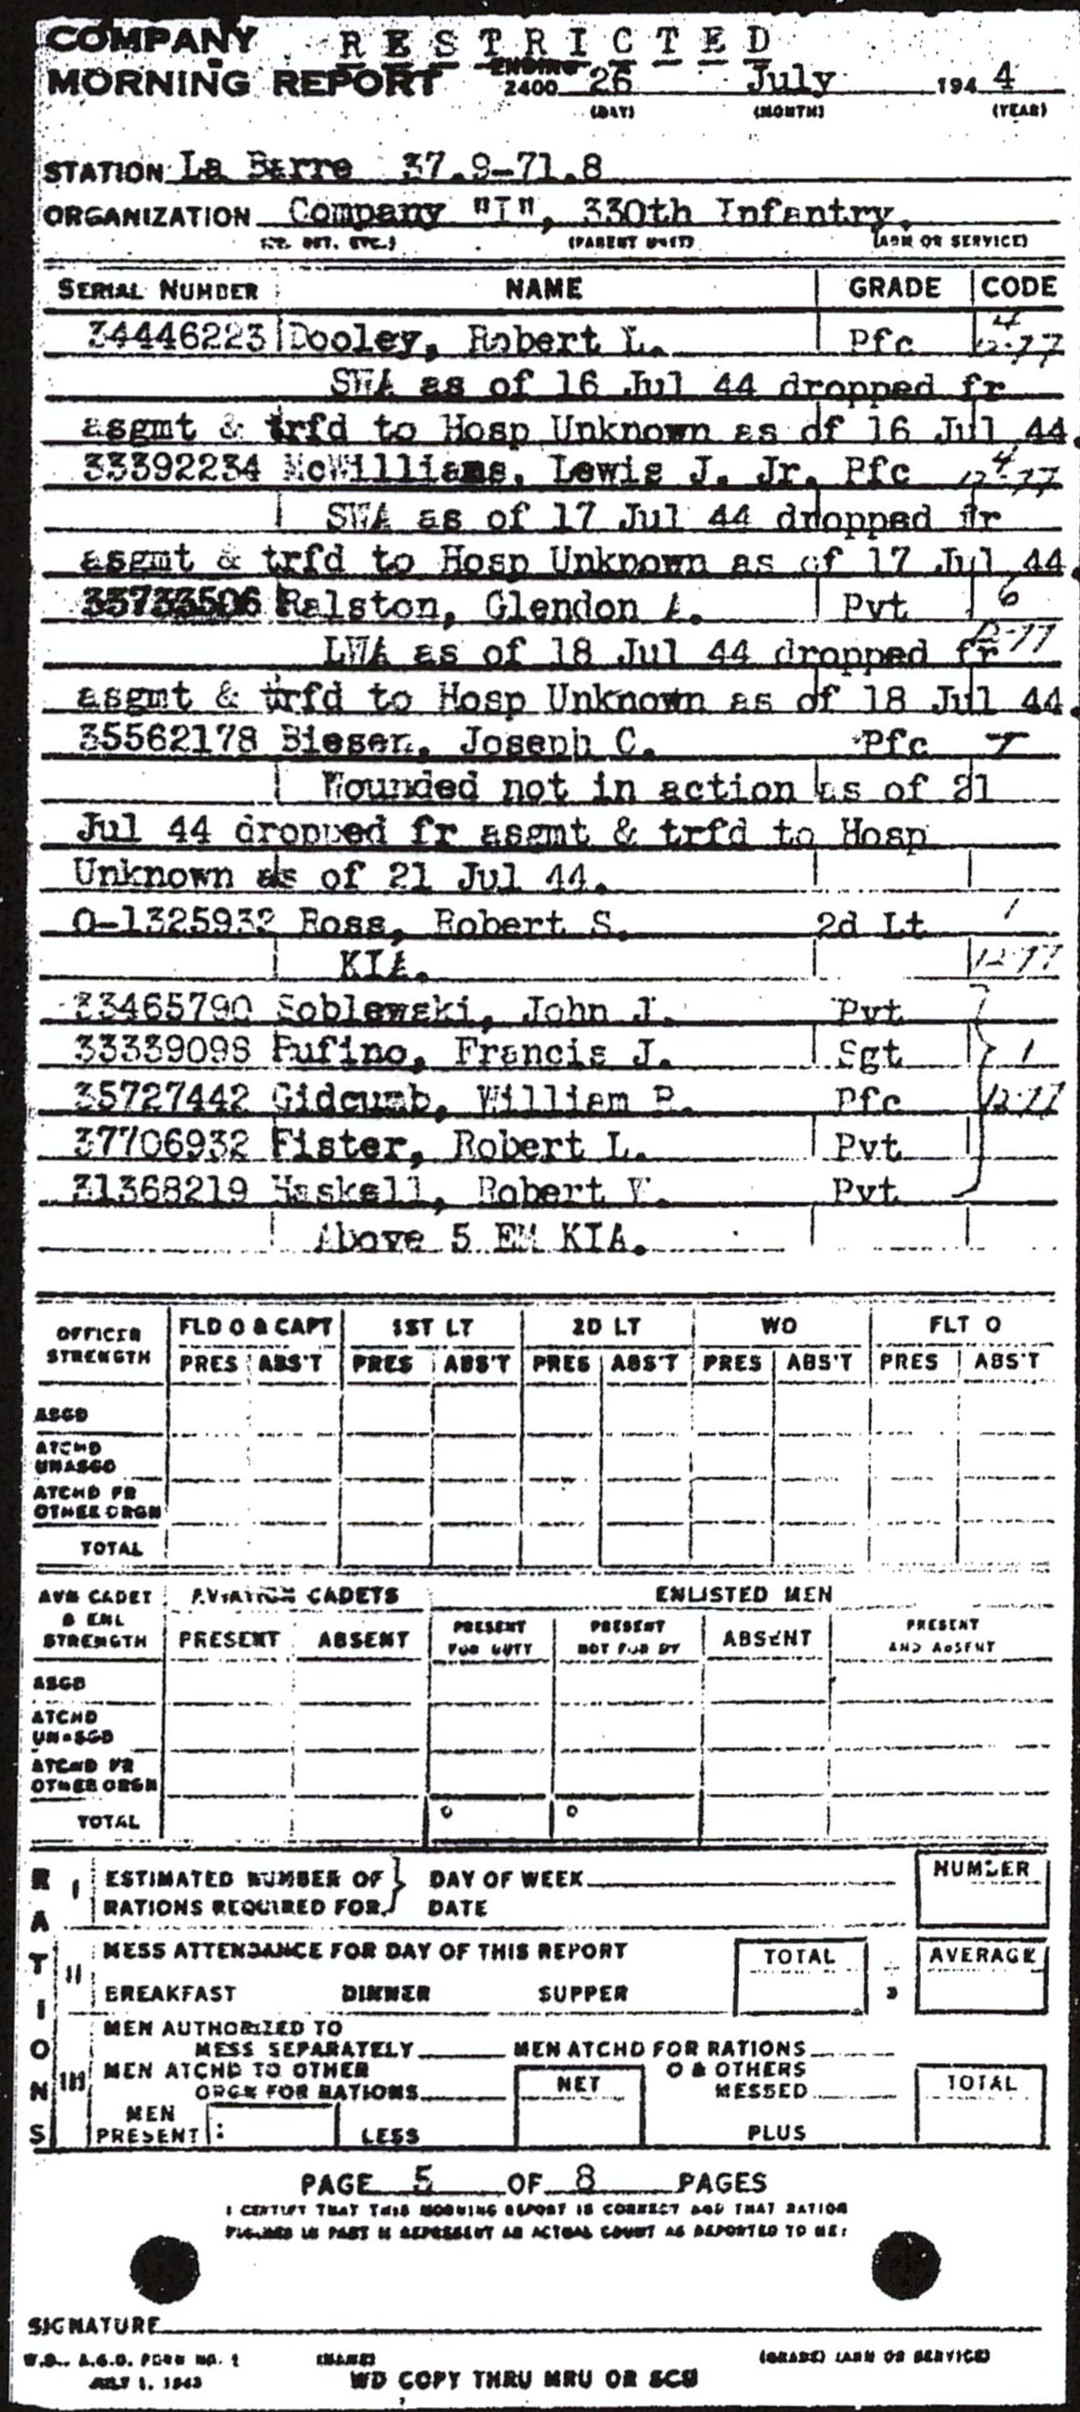 COMPANY RESTRICTED
MORNING REPORT ENDING 2400 26 July 1944
(DAY) (MONTH) (YEAR)
STATION La Barre 37.9-71.8
ORGANIZATION Company "I", 330th Infantry.
(CO. DET. ETC.) (PARENT UNIT) (ARM OR SERVICE)
SERIAL NUMBER NAME GRADE CODE
34446223 Dooley, Robert L. Pfc 4
12-77
SWA as of 16 Jul 44 dropped fr
asgmt & trfd to Hosp Unknown as of 16 Jul 44.
33392234 McWilliams, Lewis J. Jr. Pfc 4
12-77
SWA as of 17 Jul 44 dropped fr
asgmt & trfd to Hosp Unknown as of 17 Jul 44.
33733506 Ralston, Glendon A. Pvt 6
12-77
LWA as of 18 Jul 44 dropped fr
asgmt & trfd to Hosp Unknown as of 18 Jul 44.
35562178 Bieser, Joseph C. Pfc
Wounded not in action as of 21
Jul 44 dropped fr asgmt & trfd to Hosp
Unknown as of 21 Jul 44.
O-1325932 Ross, Robert S. 2d Lt 1
KIA. 12-77
33465790 Soblewski, John J. Pvt
33339098 Rufino, Francis J. Sgt 1
35727442 Gidcumb, William P. Pfc 12-77
37706932 Fister, Robert L. Pvt
31368219 Haskell, Robert W. Pvt
Above 5 EM KIA.
OFFICER STRENGTH FLD O & CAPT 1ST LT 2D LT WO FLT O
PRES ABS'T PRES ABS'T PRES ABS'T PRES ABS'T PRES ABS'T
ASGD
ATCHD
UNASGD
ATCHD FR
OTHER ORGN
TOTAL
AVN CADET & ENL STRENGTH AVIATION CADETS ENLISTED MEN
PRESENT ABSENT PRESENT FOR DUTY PRESENT NOT FOR DY ABSENT PRESENT AND ABSENT
ASGD
ATCHD
UNASGD
ATCHD FR
OTHER ORGN
TOTAL
RATIONS
I ESTIMATED NUMBER OF DAY OF WEEK NUMBER
RATIONS REQUIRED FOR DATE
II MESS ATTENDANCE FOR DAY OF THIS REPORT TOTAL AVERAGE
BREAKFAST DINNER SUPPER
MEN AUTHORIZED TO
MESS SEPARATELY MEN ATCHD FOR RATIONS
III MEN ATCHD TO OTHER O & OTHERS
ORGN FOR RATIONS NET MESSED TOTAL
MEN
PRESENT : LESS PLUS
PAGE 5 OF 8 PAGES
I CERTIFY THAT THIS MORNING REPORT IS CORRECT AND THAT RATION
FIGURES IN PART II REPRESENT AN ACTUAL COUNT AS REPORTED TO ME:
SIGNATURE
W.D., A.G.O. FORM NO. 1 (NAME) (GRADE) (ARM OR SERVICE)
JULY 1, 1943 WD COPY THRU MRU OR SCU